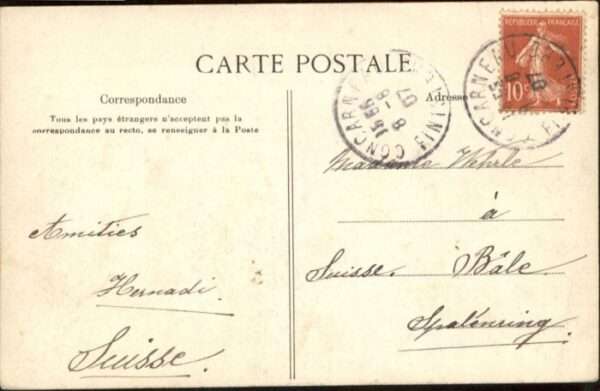 CARTE POSTALE
Correspondance
Tous les pays étrangers n'acceptent pas la
correspondance au recto, se renseigner à la Poste
Amitiés
Hernadi.
Suisse.
REPUBLIQUE FRANÇAISE
10
CONCARNEAU FINIST
15 55
8 - 8
07
CONCARNEAU
07
Adresse
Madame Wehrle
à
Suisse. Bâle.
Spalenring.